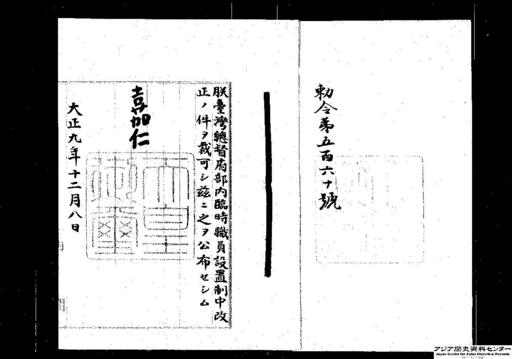 勅令第五百六十號
朕臺灣總督府部內臨時職員設置制中改
正ノ件ヲ裁可シ茲ニ之ヲ公布セシム
嘉仁
大正九年十二月八日
アジア歴史資料センター
Japan Center for Asian Historical Records